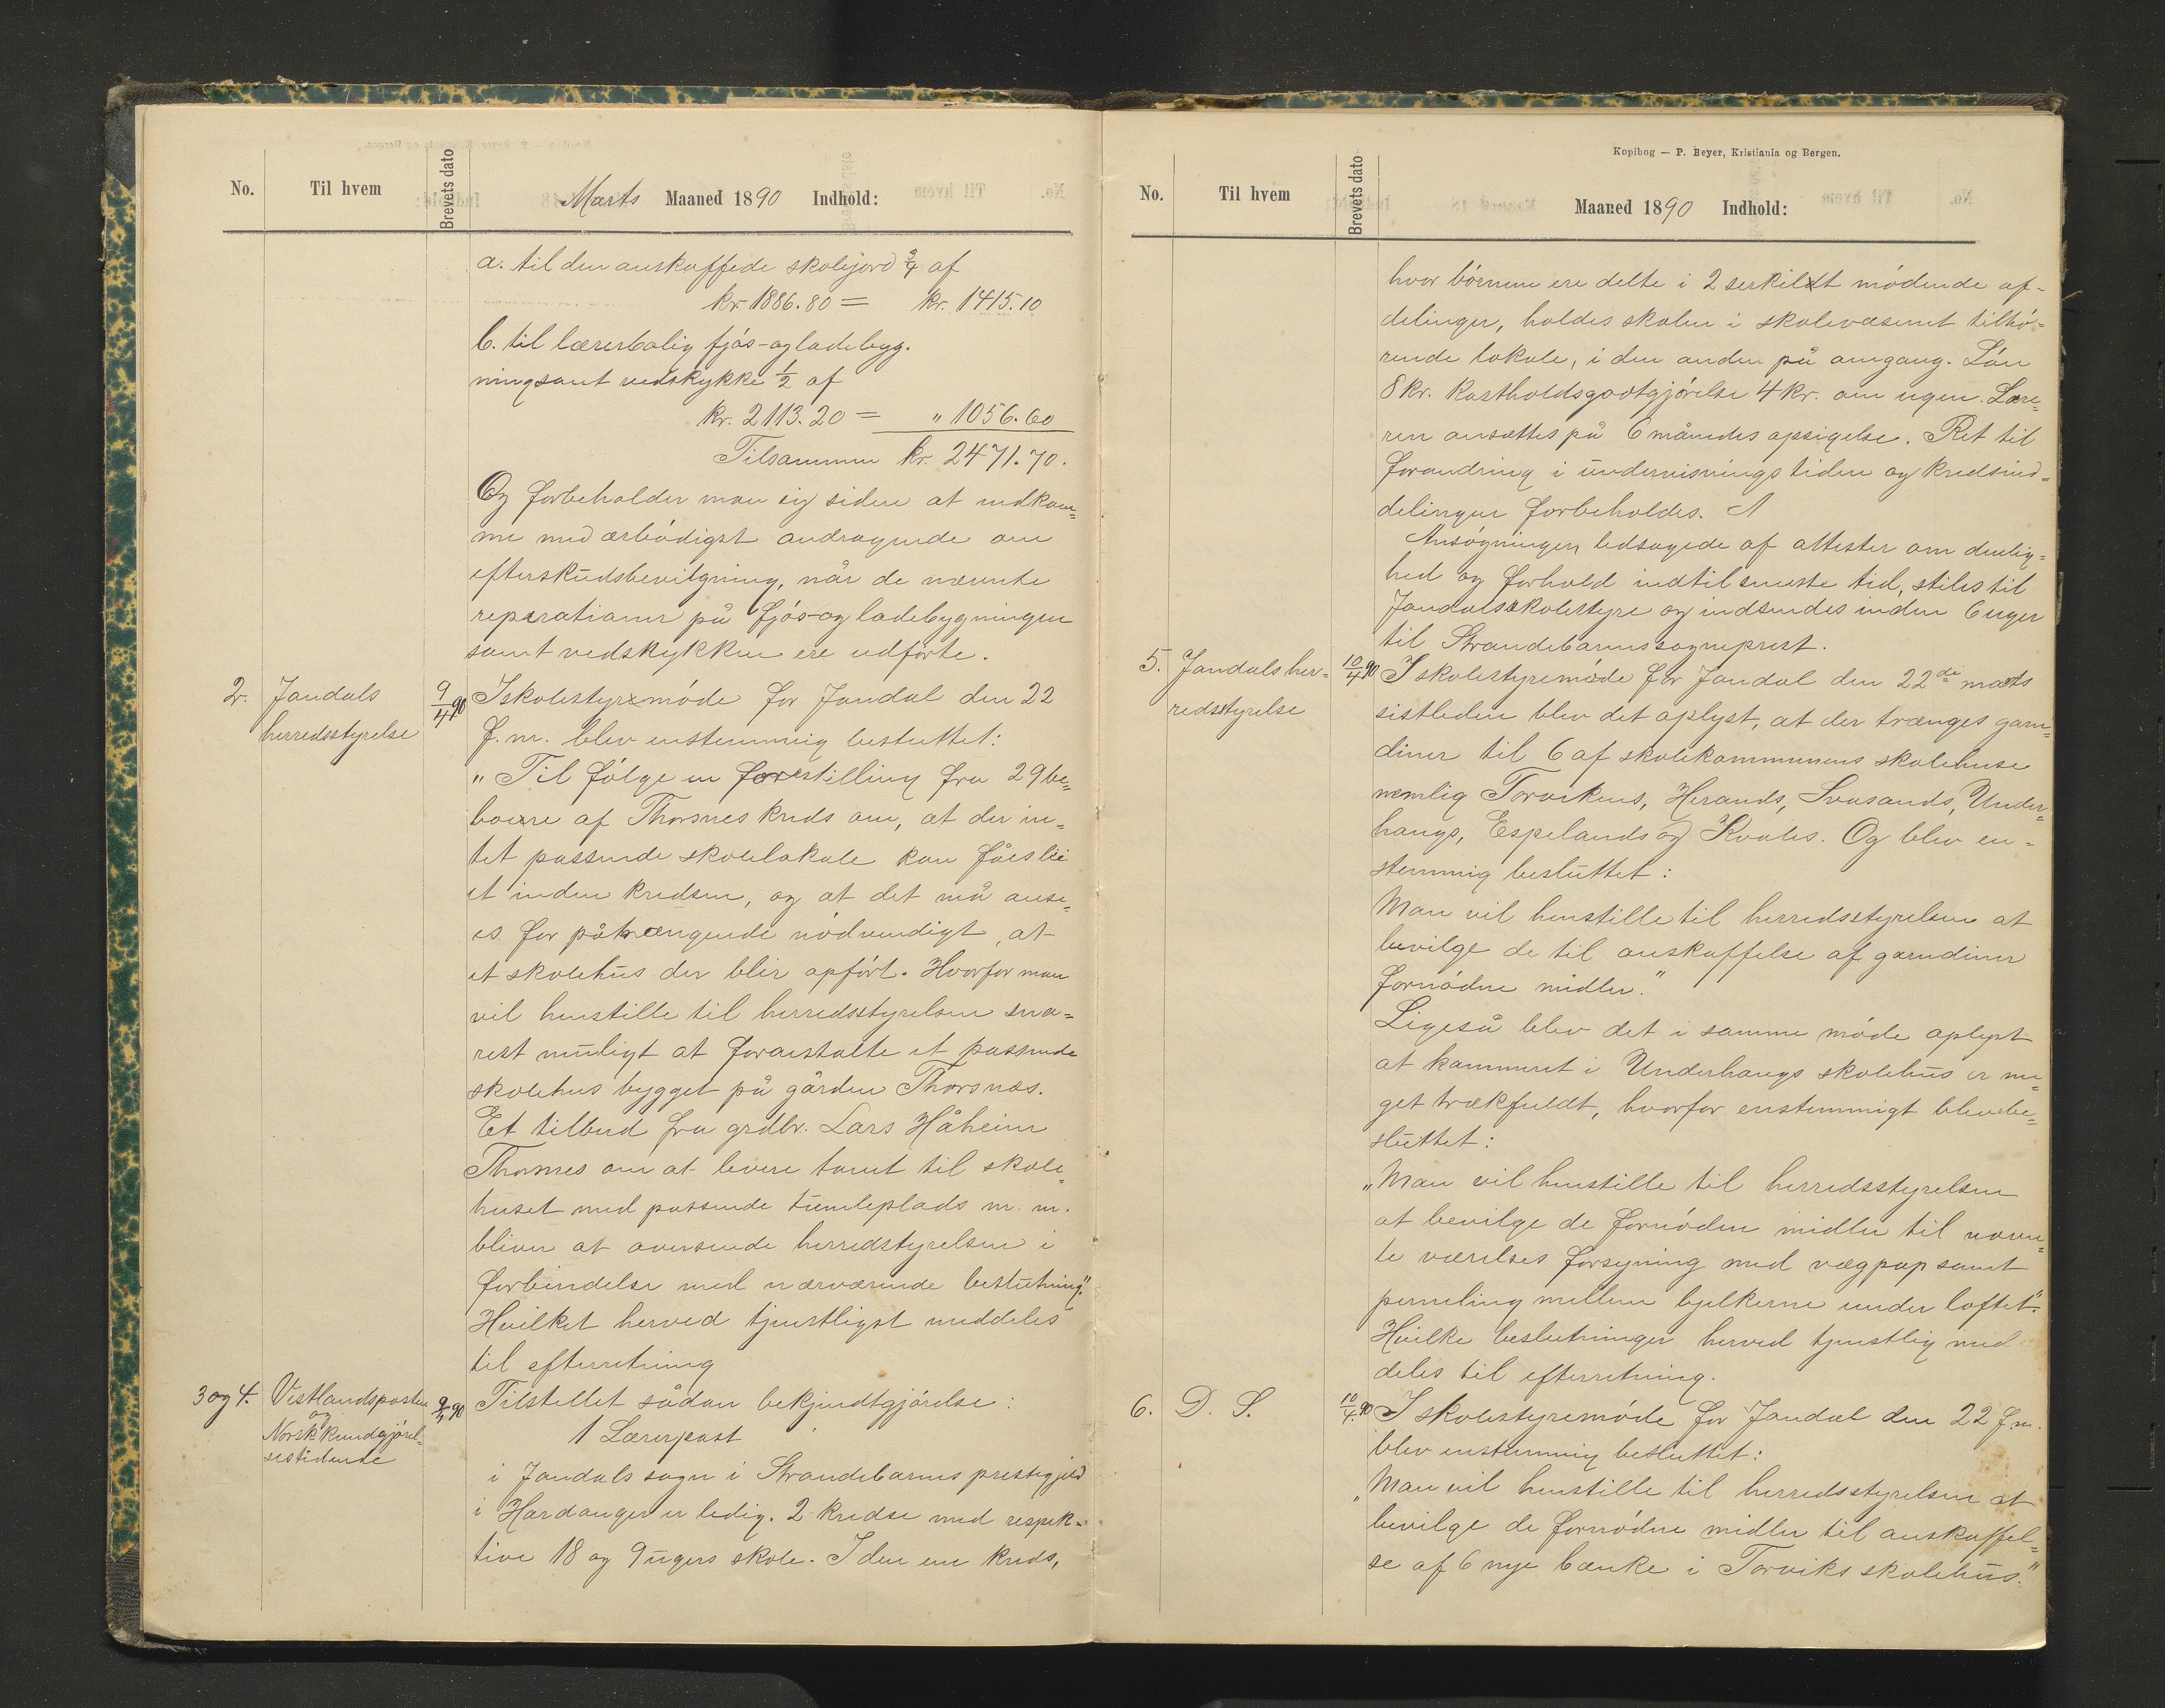 No.
Til hvem
Brevets dato
Marts Maaned 1890 Indhold:
a. til den anskaffede skolejord 3/4 af
kr 1886.80 = kr. 1415.10
b. til lærerbolig fjøs- og ladebyg-
ning samt vedskykke 1/2 af
kr. 2113.20 = " 1056.60
Tilsammen kr. 2471.70.
Og forbeholder man sig siden at indkom=
me med ærbödigst andragende om
efterskudsbevilgning, når de nævnte
reparationer på fjös- og ladebygningen
samt vedskykken ere udförte.
2. Jondals
herredsstyrelse
9/4 90
I skolestyremöde for Jondal den 22
f.m. blev enstemmig besluttet:
"Til fölge en forestilling fra 29 be=
boere af Thorsnes kreds om, at der in=
tet passende skolelokale kan fåes lei
et inden kredsen, og at det må anse=
es for påtrængende nödvendigt, at
et skolehus der blir opfört. Hvorfor man
vil henstille til herredsstyrelsen sna=
rest muligt at foranstalte et passende
skolehus bygget på gården Thorsnæs.
Et tilbud fra grdbr. Lars Håheim
Thorsnes om at levere tomt til skole=
huset med passende tumleplads m. m.
bliver at oversende herredstyrelsen i
forbindelse med nærværende beslutning."
Hvilket herved tjenstligst meddeles
til efterretning
3 og 4. Vestlandsposten
og
Norsk kundgjörel=
sestidende
9/4 90
Tilstellet sådan bekjendtgjörelse:
1 Lærerpost
i Jondals sogn i Strandebarms prestegjeld
i Hardanger er ledig. 2 kredse med respek=
tive 18 og 9 ugers skole. I den ene kreds,
Kopibog — P. Beyer, Kristiania og Bergen.
No.
Til hvem
Brevets dato
Maaned 1890 Indhold:
hvor börnene ere delte i 2 serskildt mödende af-
delinger, holdes skolen i skolevæsenet tilhö=
rende lokale, i den anden på omgang. Lön
8 kr. kostholdsgodtgjörelse 4 kr. om ugen. Lære=
ren ansættes på 6 måneders opsigelse. Ret til
forandring i undervisningstiden og kredsind=
delingen forbeholdes.
Ansögninger, ledsagede af attester om duelig=
hed og forhold indtil seneste tid, stiles til
Jondals skolestyre og indsendes inden 6 uger
til Strandebarms sogneprest.
5. Jondals her=
redsstyrelse
10/4 90
I skolestyremöde for Jondal den 22de marts
sistleden blev det oplyst, at der trænges gar=
diner til 6 af skolekommunens skolehuse
nemlig Torvikens, Herands, Svasands, Under=
haugs, Espelands og Kvales. Og blev en=
stemmig besluttet:
Man vil henstille til herredsstyrelsen at
bevilge de til anskaffelse af gardiner
fornödne midler."
Ligeså blev det i samme möde oplyst
at kammeret i Underhaugs skolehus er me=
get trækfuldt, hvorfor enstemmigt blev be=
sluttet:
"Man vil henstille til herredsstyrelsen
at bevilge de fornöden midler til nævn=
te værelses forsyning med vægpap samt
perneling mellem bjelkerne under loftet".
Hvilke beslutninger herved tjenstlig med
deles til efterretning.
6. D. S.
10/4. 90
I skolestyremöde for Jondal den 22 f.m.
blev enstemmig besluttet:
"Man vil henstille til herredsstyrelsen at
bevilge de fornödne midler til anskaffel=
se af 6 nye bænke i Torviks skolehus."